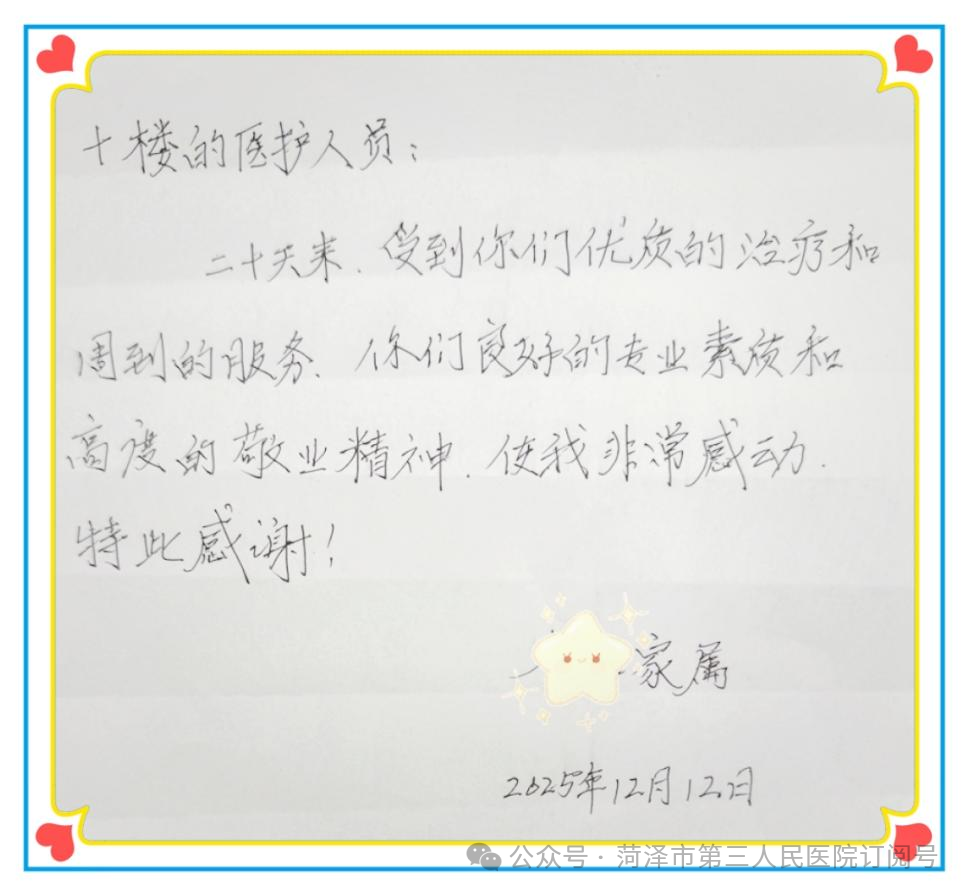 十楼的医护人员：
二十天来、受到你们优质的治疗和
周到的服务、你们良好的专业素质和
高度的敬业精神、使我非常感动.
特此感谢！
家属
2025年12月12日
公众号 · 菏泽市第三人民医院订阅号